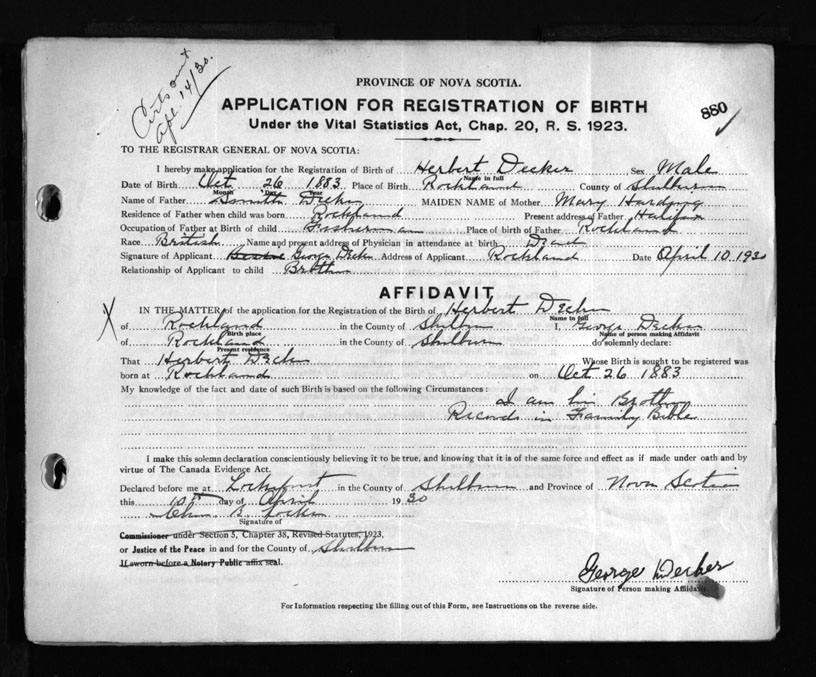 Certs out
Apl. 14/30.
PROVINCE OF NOVA SCOTIA.
APPLICATION FOR REGISTRATION OF BIRTH
880
Under the Vital Statistics Act, Chap. 20, R. S. 1923.
TO THE REGISTRAR GENERAL OF NOVA SCOTIA:
I hereby make application for the Registration of Birth of Herbert Decker Sex Male
Name in full
Date of Birth Oct 26 1883 Place of Birth Rockland County of Shelburne
Month Day Year
Name of Father Decker MAIDEN NAME of Mother Mary Harding
Residence of Father when child was born Rockland Present address of Father Halifax
Occupation of Father at Birth of child Fisherman Place of birth of Father Rockland
Race British Name and present address of Physician in attendance at birth Dead
Signature of Applicant George Decker Address of Applicant Rockland Date April 10 1930
Relationship of Applicant to child Brother
AFFIDAVIT
X
IN THE MATTER of the application for the Registration of the Birth of Herbert Decker
Name in full
of Rockland in the County of Shelburne I, George Decker
Birth place Name of person making Affidavit
of Rockland in the County of Shelburne do solemnly declare:
Present residence
That Herbert Decker Whose Birth is sought to be registered was
born at Rockland on Oct 26 1883
My knowledge of the fact and date of such Birth is based on the following Circumstances:
I am his Brother
Records in Family Bible
I make this solemn declaration conscientiously believing it to be true, and knowing that it is of the same force and effect as if made under oath and by
virtue of The Canada Evidence Act.
Declared before me at Lockeport in the County of Shelburne and Province of Nova Scotia
this 10th day of April 1930
Locke
Signature of
Commissioner under Section 5, Chapter 38, Revised Statutes, 1923,
or Justice of the Peace in and for the County of Shelburne
If sworn before a Notary Public affix seal.
George Decker
Signature of Person making Affidavit
For Information respecting the filling out of this Form, see Instructions on the reverse side.